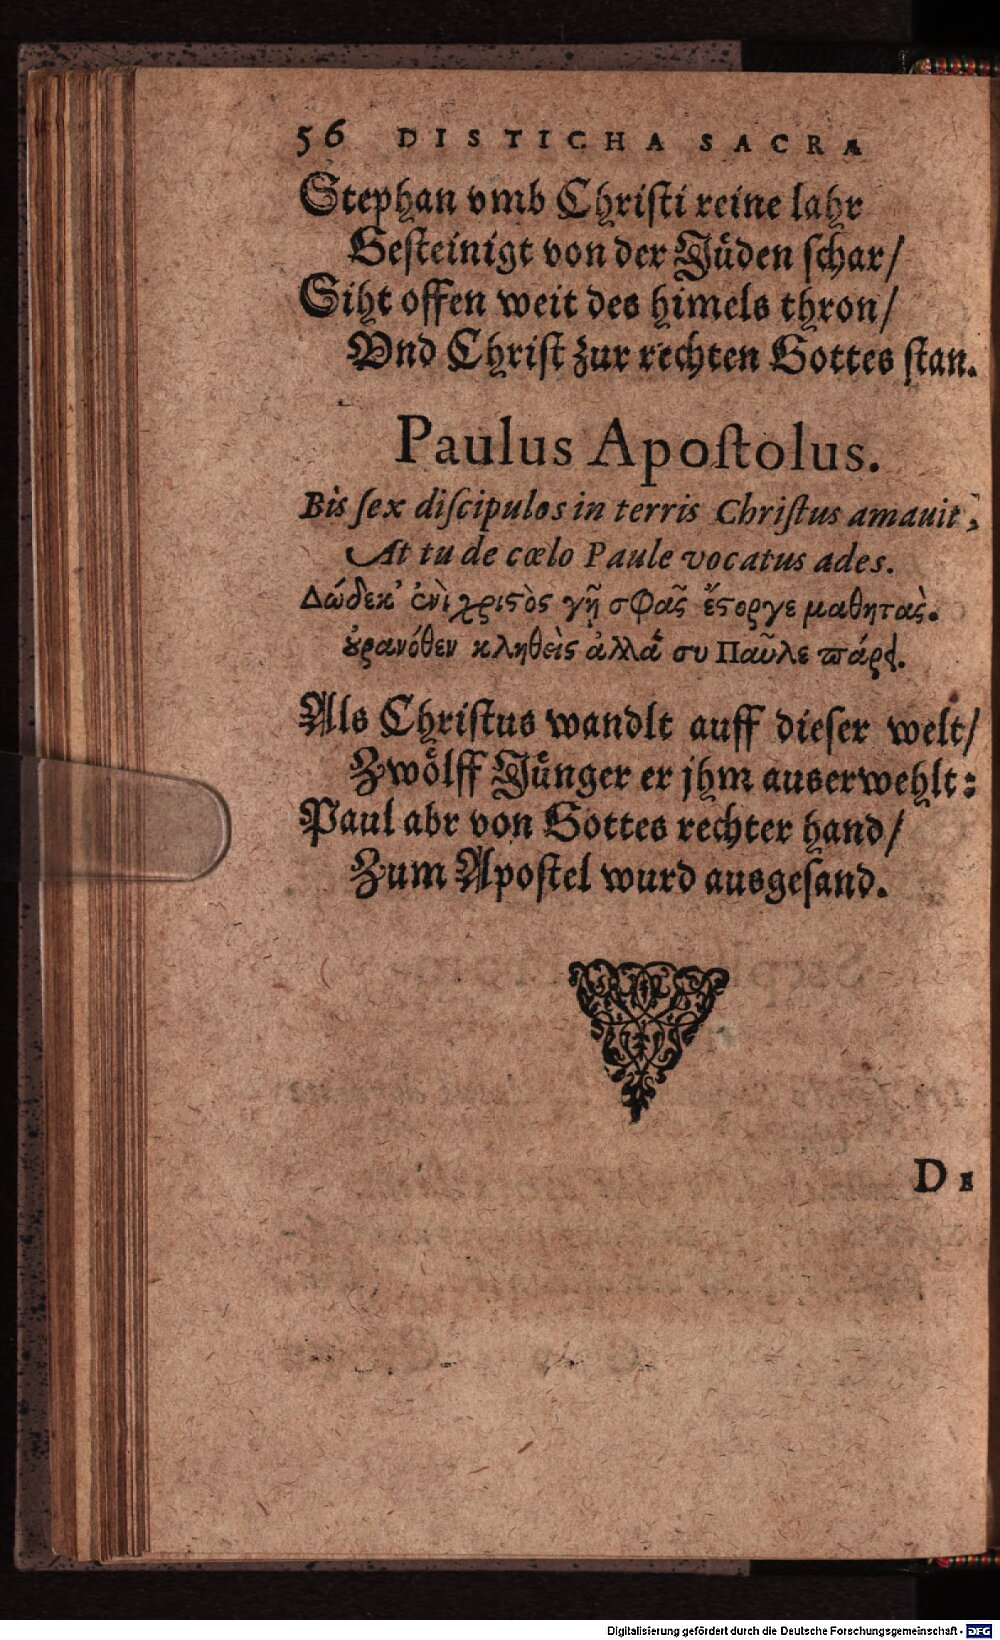 56 DISTICHA SACRA
Stephan vmb Christi reine lahr
Gesteinigt von der Jüden schar/
Siht offen weit des himels thron/
Vnd Christ zur rechten Gottes stan.
Paulus Apoſtolus.
Bis ſex diſcipulos in terris Chriſtus amauit,
At tu de cœlo Paule vocatus ades.
Δώδεκ' ἐνὶ χριϛὸς γῇ σφᾶς ἔϛοργε μαθητὰς.
ȣ̓ρανόθεν κληθεὶς ἀλλὰ συ Παῦλε πάρει.
Als Christus wandlt auff dieser welt/
Zwölff Jünger er jhm auserwehlt:
Paul abr von Gottes rechter hand/
Zum Apostel wurd ausgesand.
DE
Digitalisierung gefördert durch die Deutsche Forschungsgemeinschaft - DFG